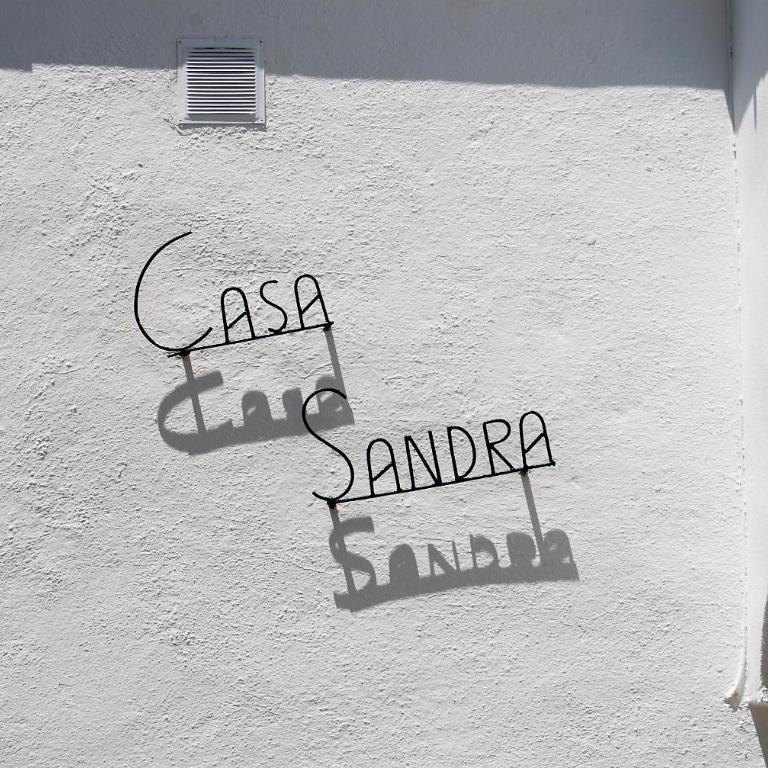 CASA
SANDRA